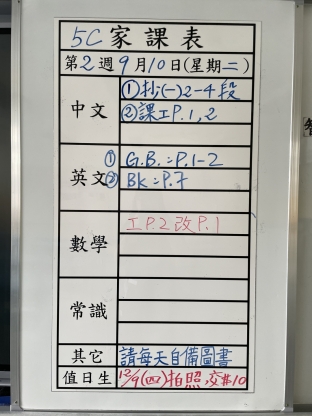 5C家課表
第2週9月10日(星期二)
中文 ①抄(一)2-4段
②課工P.1,2
英文 ① G.B.:P.1-2
② BK:P.7
數學 工P.2改P.1
常識
其它 請每天自備圖書
值日生 12/9(四)拍照,交#10